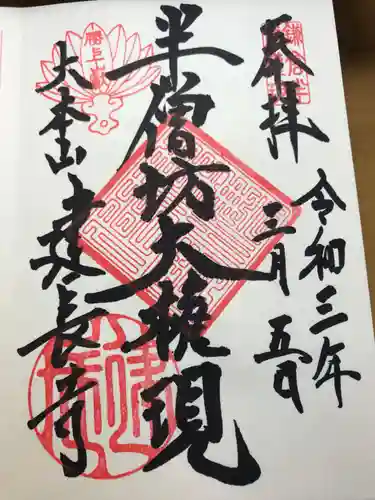 奉拝
令和三年
三月五日
半僧坊大権現
勝上嶽
大本山建長寺